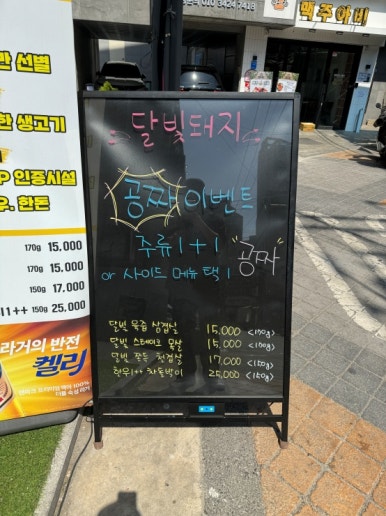 010 3424 7428
맥주아비
한 선별
한 생고기
P 인증시설
우. 한돈
170g 15,000
170g 15,000
150g 17,000
1++ 150g 25,000
라거의 반전
켈리
달빛돼지
공짜 이벤트
주류 1+1
"공짜"
or 사이드 메뉴 택 1
달빛 육즙 삼겹살 15,000 <170g>
달빛 스테이크 목살 15,000 <170g>
달빛 꽃등 항정살 17,000 <150g>
한우1++ 차돌박이 25,000 <150g>